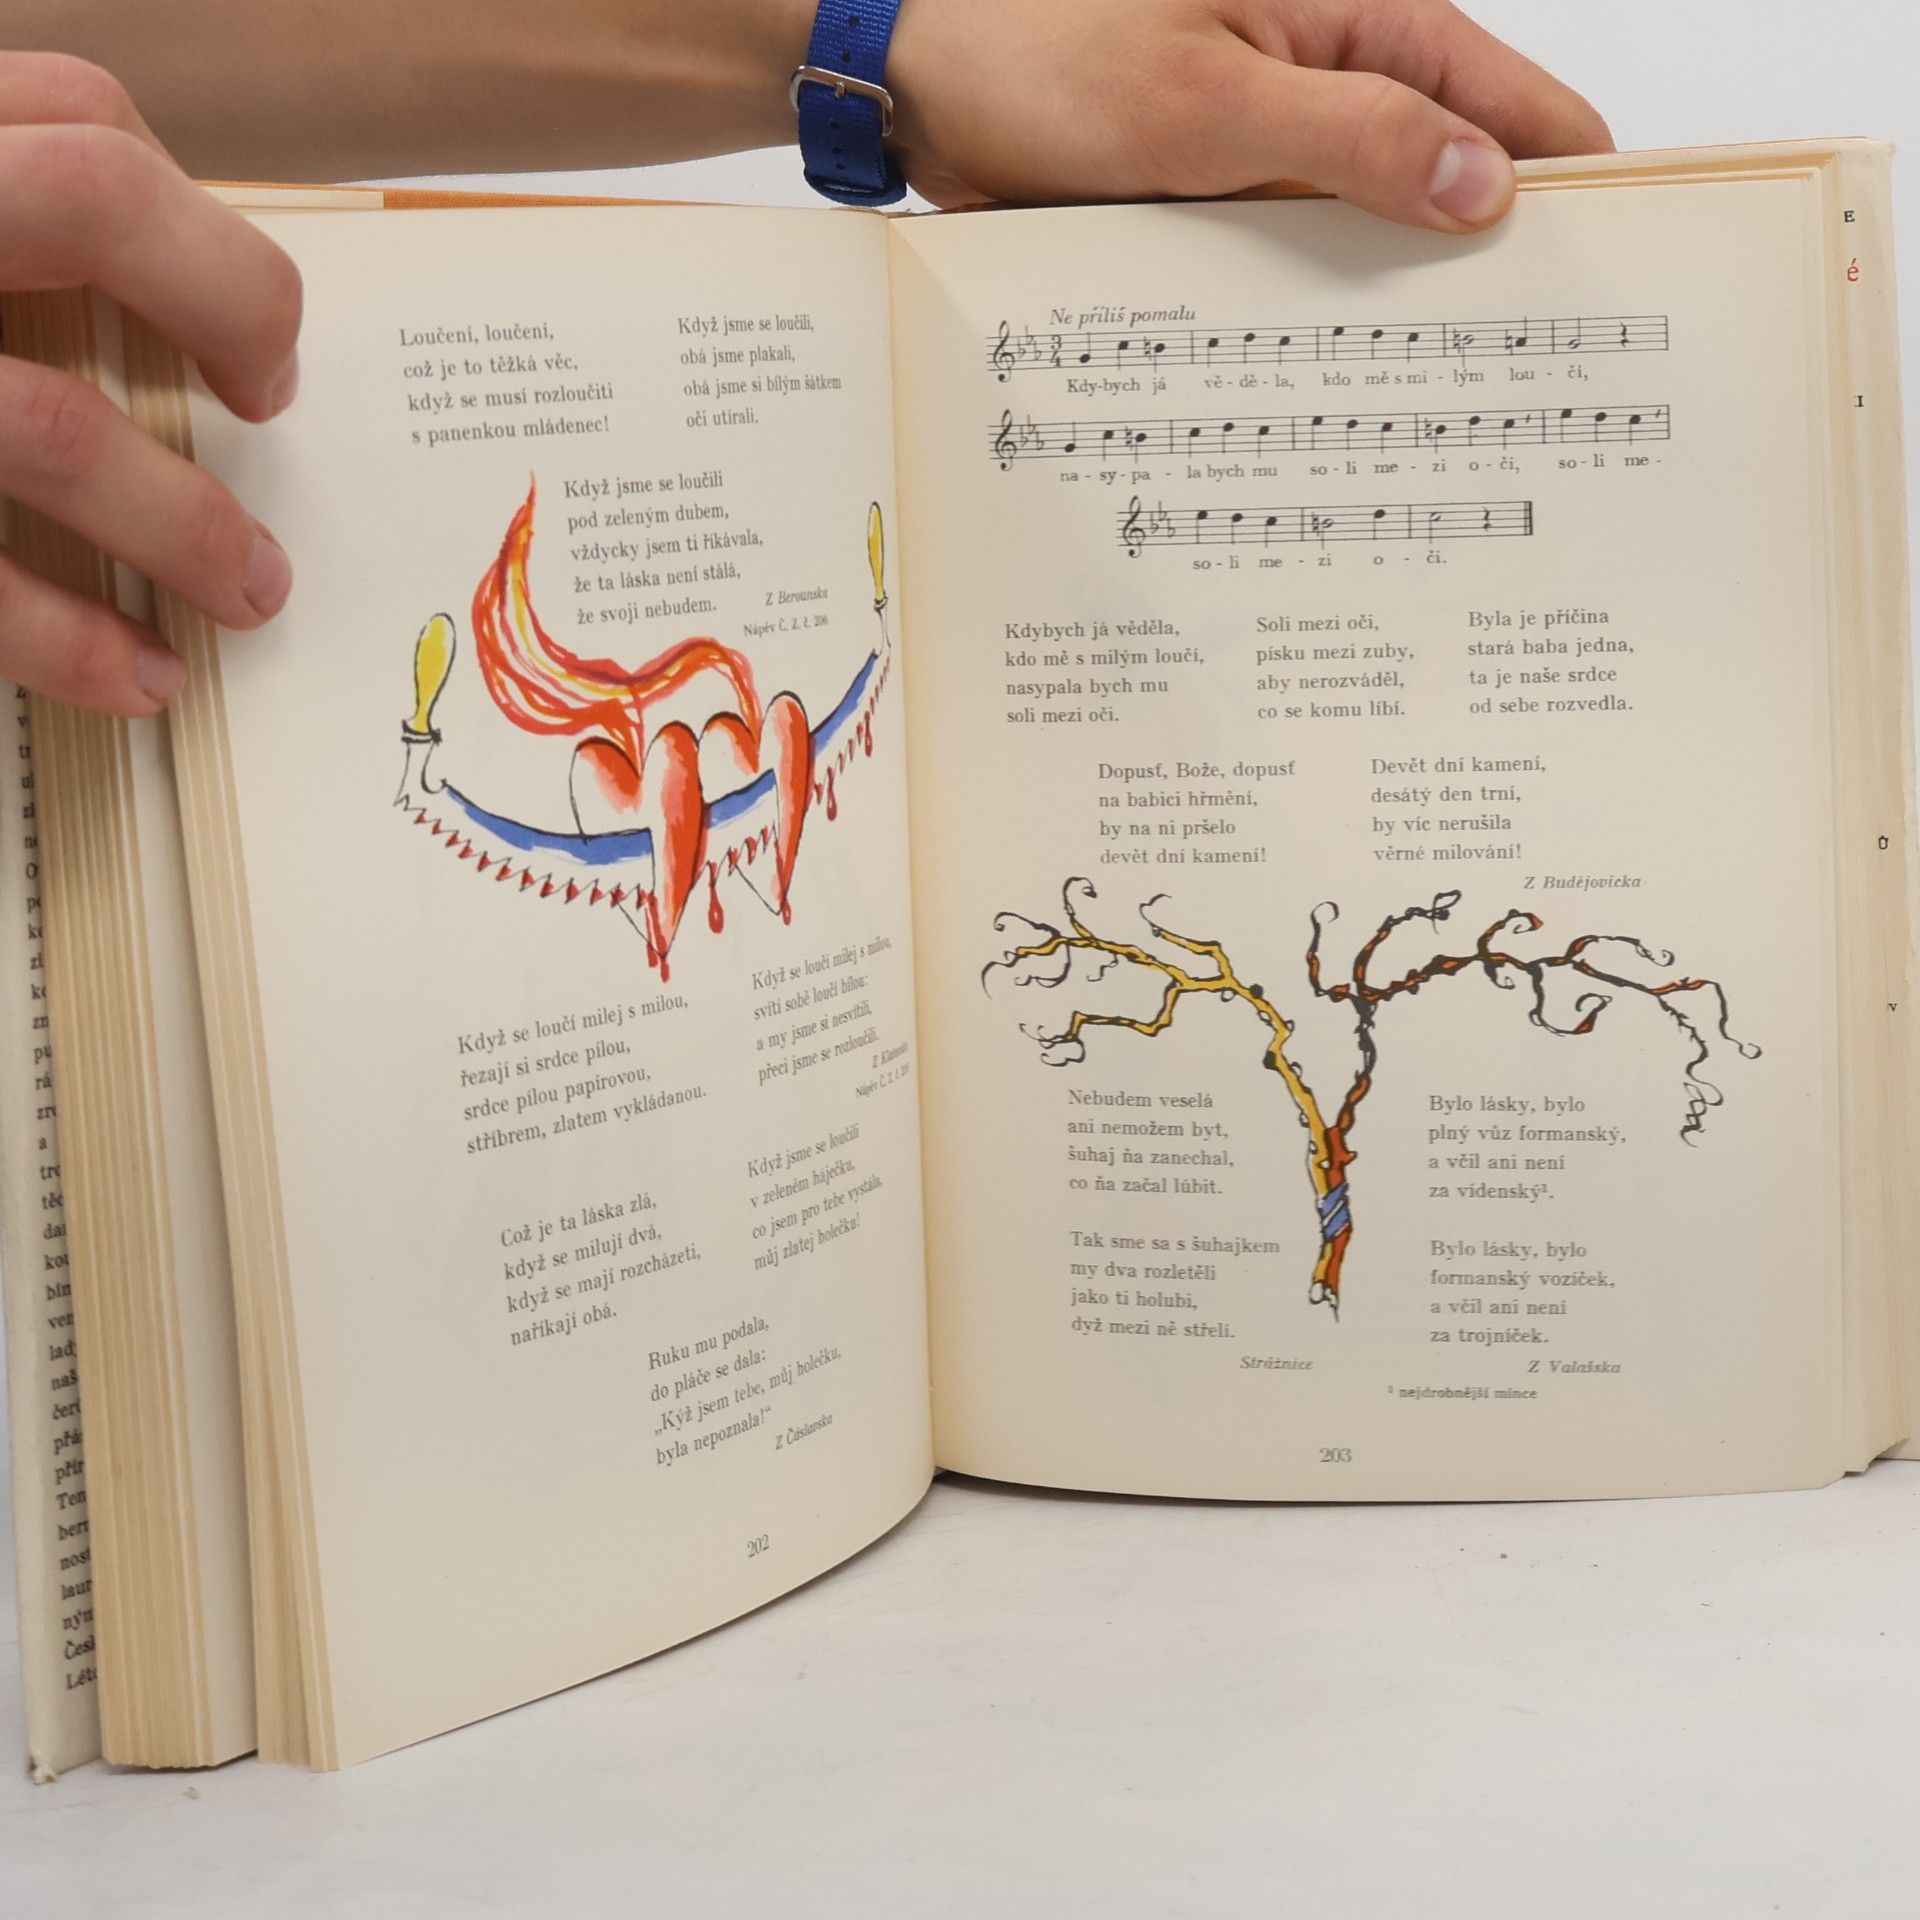 Loučení, loučení,
což je to těžká věc,
když se musí rozloučiti
s panenkou mládenec!
Když jsme se loučili,
obá jsme plakali,
obá jsme si bílým šátkem
oči utírali.
Když jsme se loučili
pod zeleným dubem,
vždycky jsem ti říkávala,
že ta láska není stálá,
že svoji nebudem.
Z Berounska
Nápěv Č. Z. č. 206
Když se loučí milej s milou,
řezají si srdce pílou,
srdce pílou papírovou,
stříbrem, zlatem vykládanou.
Když se loučí milej s milou,
svítí sobě loučí bílou:
a my jsme si nesvítili,
přeci jsme se rozloučili.
Což je ta láska zlá,
když se milují dvá,
když se mají rozcházeti,
naříkají obá.
Když jsme se loučili
v zeleném háječku,
co jsem pro tebe vystála,
můj zlatej holečku!
Ruku mu podala,
do pláče se dala:
„Kýž jsem tebe, můj holečku,
byla nepoznala!“
Z Čáslavska
202
Ne příliš pomalu
Kdy-bych já vě-dě-la, kdo mě s mi-lým lou-čí,
na-sy-pa-la bych mu so-li me-zi o-či, so-li me-
so-li me-zi o-či.
Kdybych já věděla,
kdo mě s milým loučí,
nasypala bych mu
soli mezi oči.
Soli mezi oči,
písku mezi zuby,
aby nerozváděl,
co se komu líbí.
Byla je příčina
stará baba jedna,
ta je naše srdce
od sebe rozvedla.
Dopusť, Bože, dopusť
na babici hřmění,
by na ni pršelo
devět dní kamení!
Devět dní kamení,
desátý den trní,
by víc nerušila
věrné milování!
Z Budějovicka
Nebudem veselá
ani nemožem byt,
šuhaj ňa zanechal,
co ňa začal lúbit.
Tak sme sa s šuhajkem
my dva rozletěli
jako ti holubi,
dyž mezi ně střelí.
Strážnice
Bylo lásky, bylo
plný vůz formanský,
a včil ani není
za vídenský¹.
Bylo lásky, bylo
formanský vozíček,
a včil ani není
za trojníček.
Z Valašska
¹ nejdrobnější mince
203